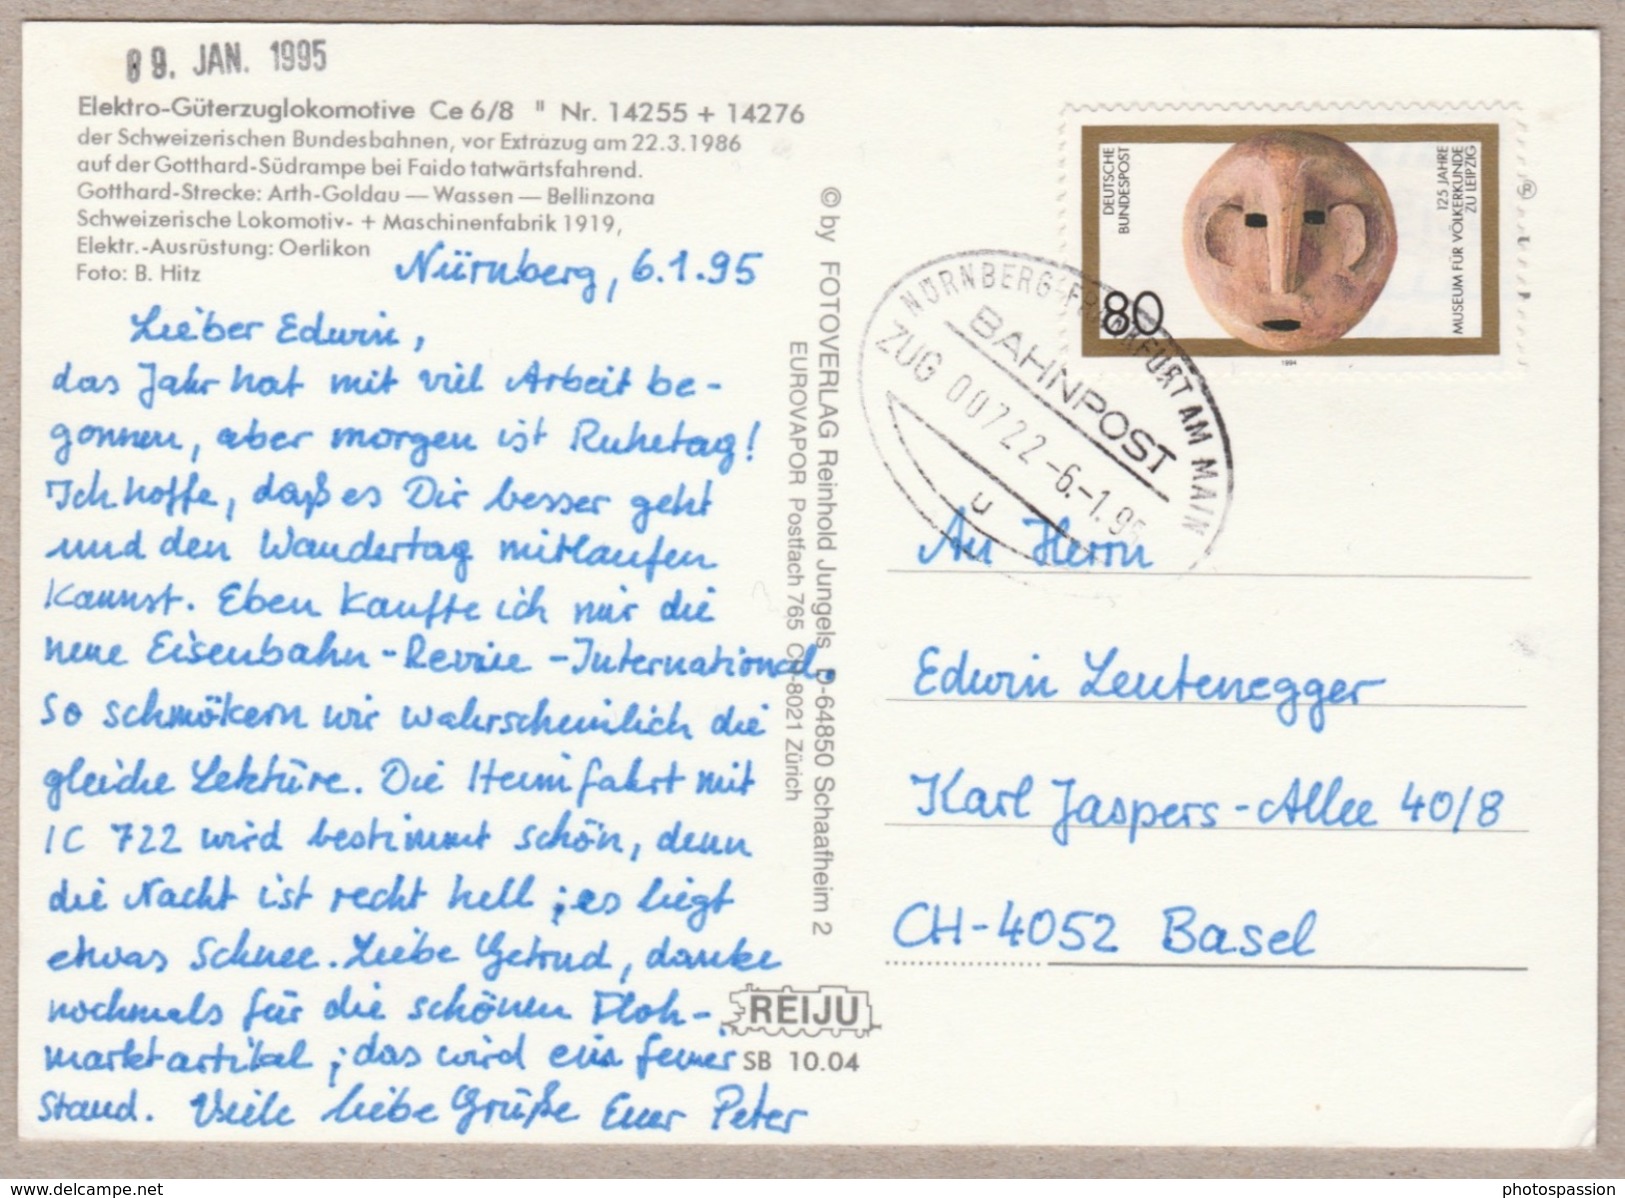 09. JAN. 1995
Elektro-Güterzuglokomotive Ce 6/8 II Nr. 14255 + 14276
der Schweizerischen Bundesbahnen, vor Extrazug am 22.3.1986
auf der Gotthard-Südrampe bei Faido tatwärtsfahrend.
Gotthard-Strecke: Arth-Goldau — Wassen — Bellinzona
Schweizerische Lokomotiv- + Maschinenfabrik 1919,
Elektr.-Ausrüstung: Oerlikon
Foto: B. Hitz
Nürnberg, 6.1.95
Lieber Edwin,
das Jahr hat mit viel Arbeit be-
gonnen, aber morgen ist Ruhetag!
Ich hoffe, daß es Dir besser geht
und den Wandertag mitlaufen
kannst. Eben kaufte ich mir die
neue Eisenbahn-Revue-International.
So schmökern wir wahrscheinlich die
gleiche Lektüre. Die Heimfahrt mit
IC 722 wird bestimmt schön, denn
die Nacht ist recht hell; es liegt
etwas Schnee. Liebe Getrud, danke
nochmals für die schönen Floh-
marktartikel; das wird ein feiner
Stand. Viele liebe Grüße Euer Peter
© by FOTOVERLAG Reinhold Jungels D-64850 Schaafheim 2
EUROVAPOR Postfach 765 CH-8021 Zürich
REIJU
SB 10.04
DEUTSCHE
BUNDESPOST
80
125 JAHRE
MUSEUM FÜR VÖLKERKUNDE
ZU LEIPZIG
1994
NÜRNBERG-FRANKFURT AM MAIN
BAHNPOST
ZUG 00722 -6.-1.95
u
An Herrn
Edwin Leutenegger
Karl Jaspers-Allee 40/8
CH-4052 Basel
delcampe.net
photospassion